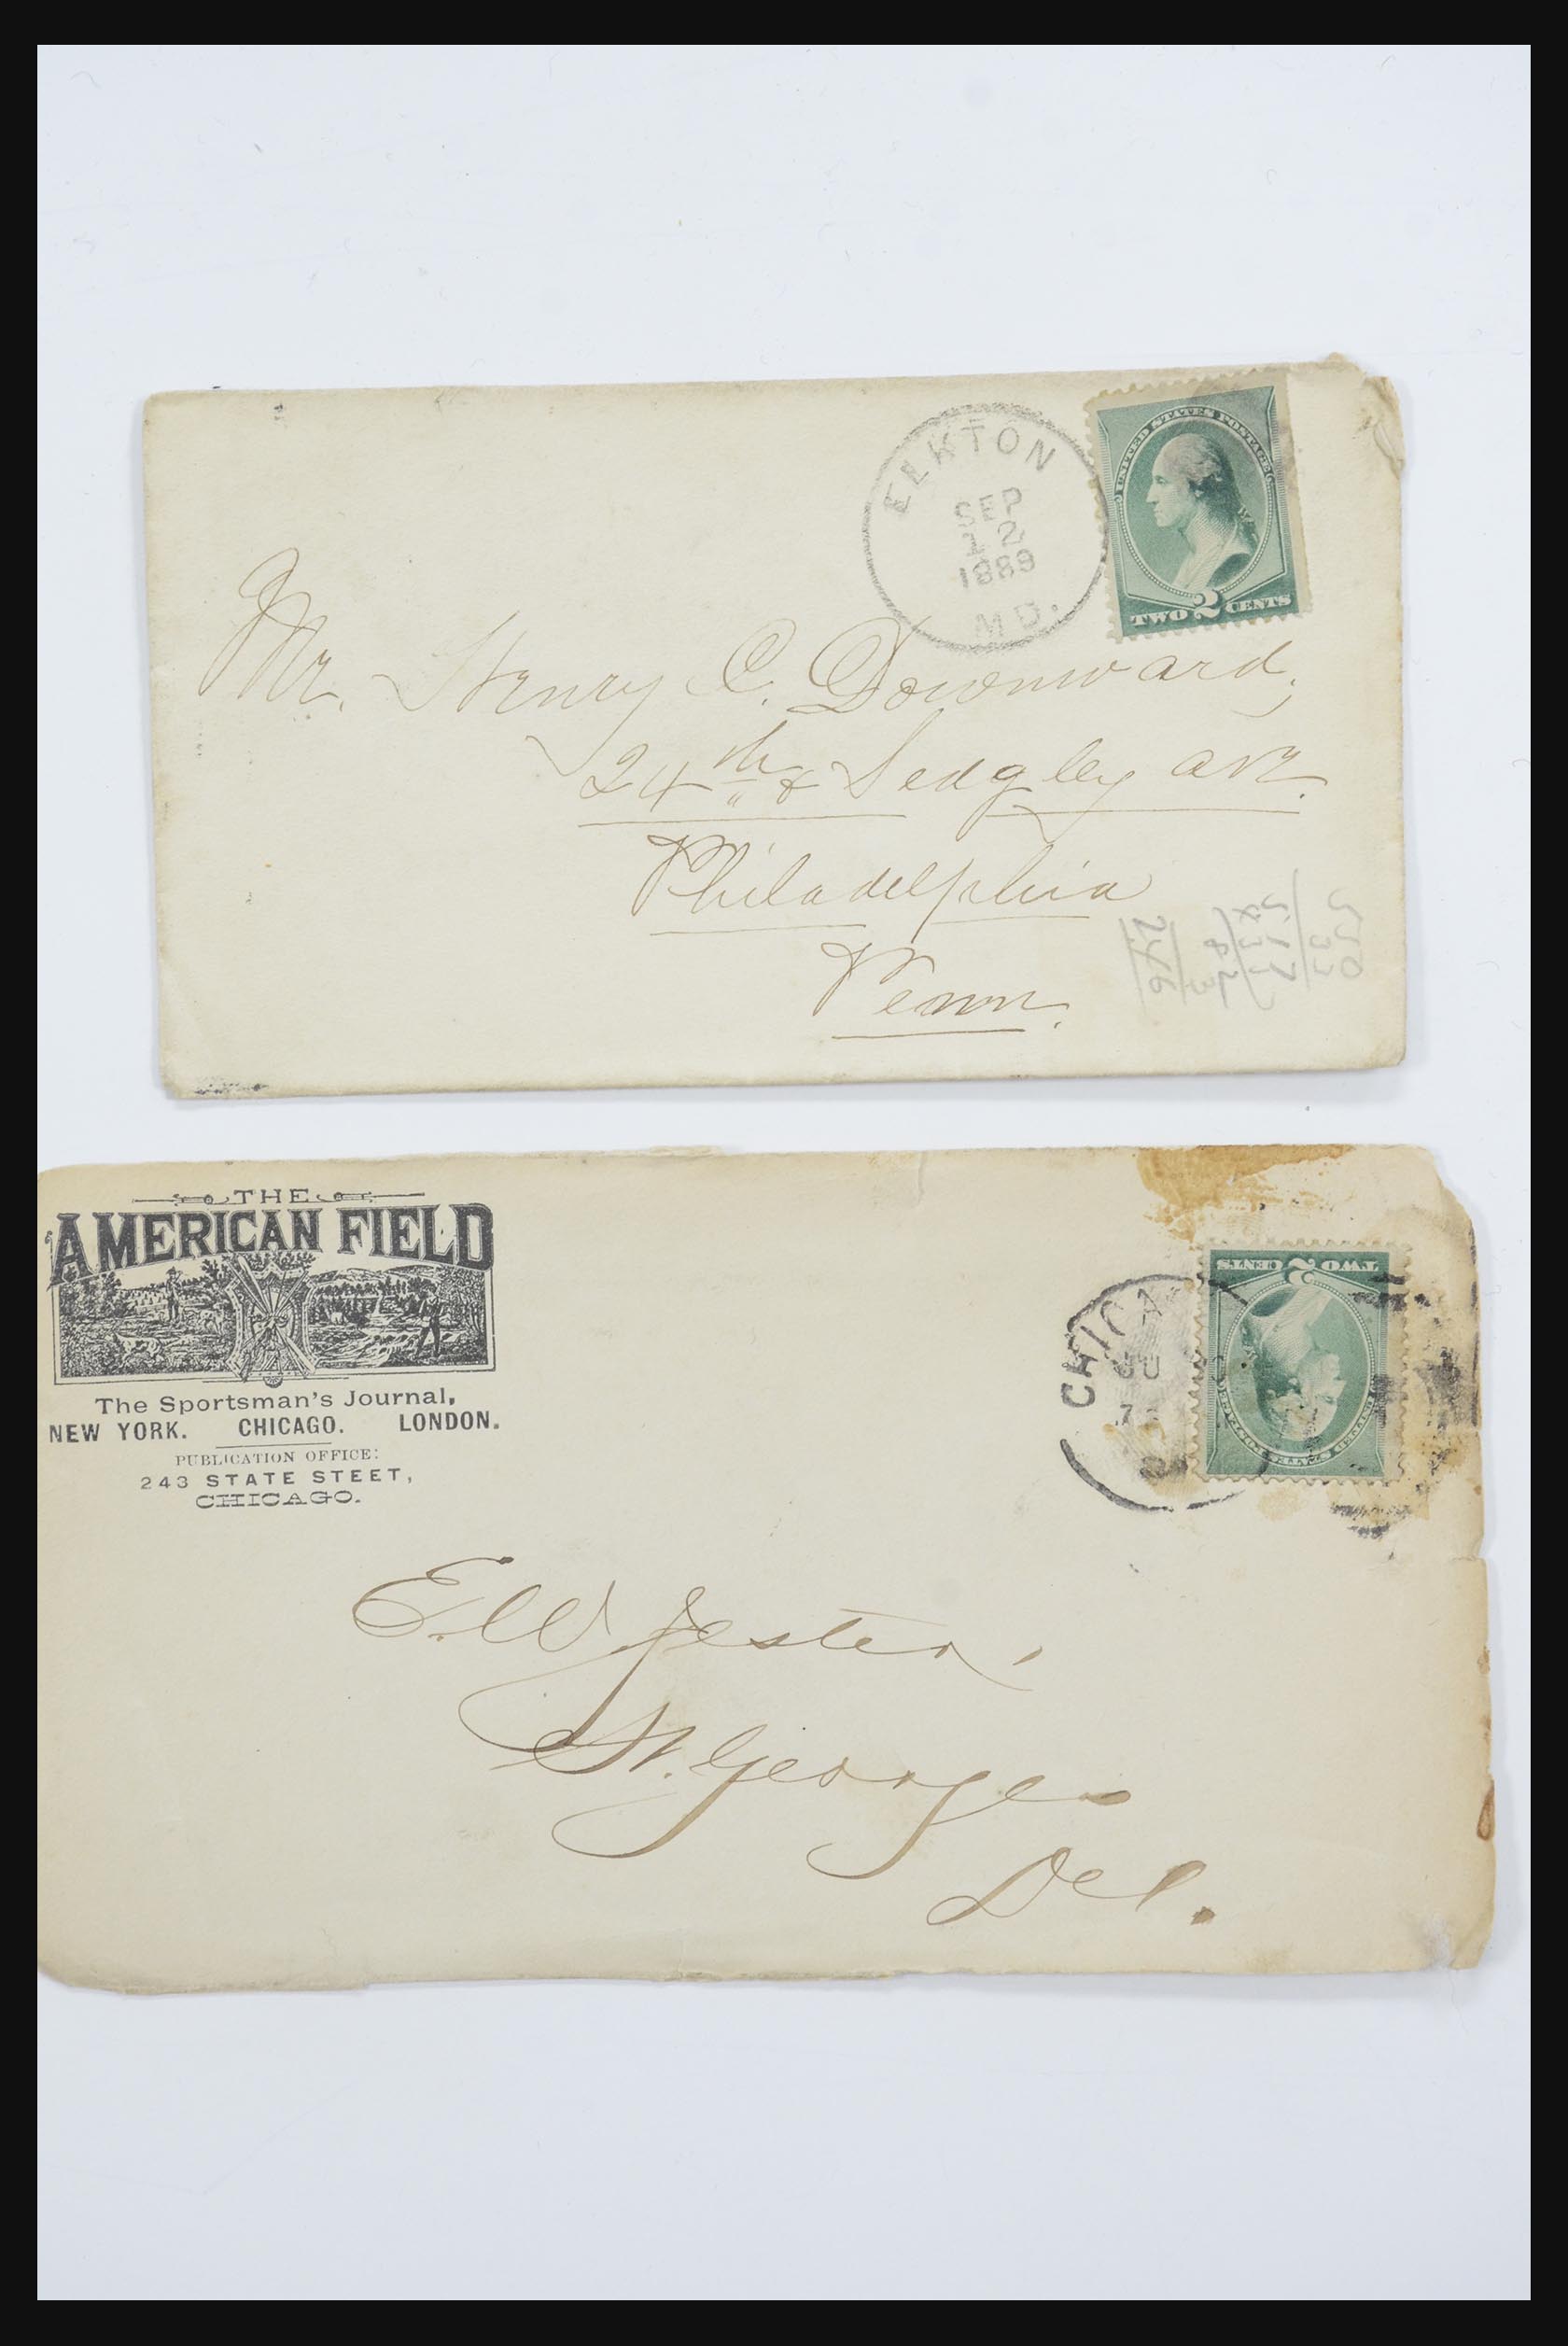 ELKTON
SEP
12
1889
MD.
UNITED STATES POSTAGE
TWO 2 CENTS
Mr. Henry C. Downward,
24th & Sedgley Ave.
Philadelphia
Penn.
THE
AMERICAN FIELD
The Sportsman's Journal,
NEW YORK. CHICAGO. LONDON.
PUBLICATION OFFICE:
243 STATE STEET,
CHICAGO.
TWO 2 CENTS
UNITED STATES POSTAGE
E. W. Jester,
St. Georges
Del.